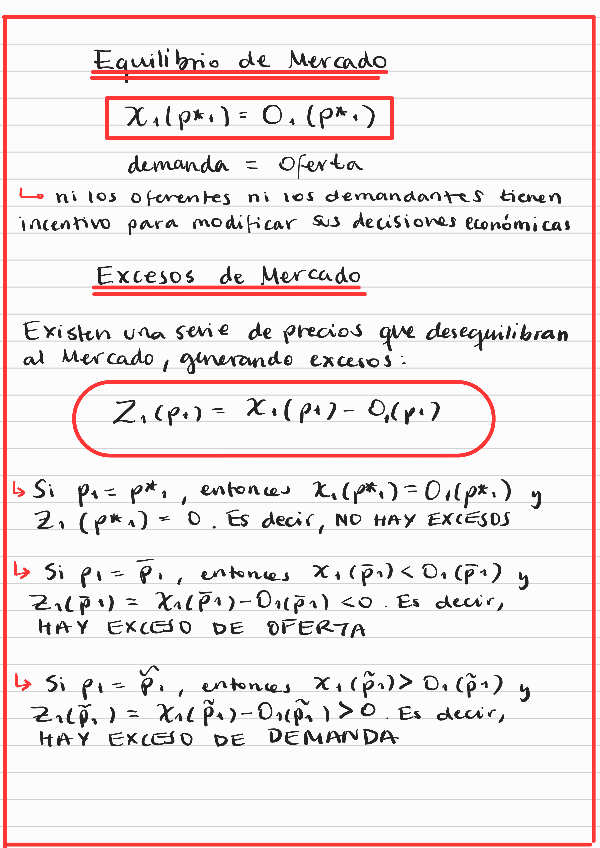 Equilibrio de Mercado
x₁(p*₁) = O₁(p*₁)
demanda = Oferta
↳ ni los oferentes ni los demandantes tienen
incentivo para modificar sus decisiones económicas
Excesos de Mercado
Existen una serie de precios que desequilibran
al Mercado, generando excesos:
Z₁(p₁) = x₁(p₁) - O₁(p₁)
↳ Si p₁ = p*₁, entonces x₁(p*₁) = O₁(p*₁) y
Z₁(p*₁) = 0. Es decir, NO HAY EXCESOS
↳ Si p₁ = p̄₁, entonces x₁(p̄₁) < O₁(p̄₁) y
Z₁(p̄₁) = x₁(p̄₁) - O₁(p̄₁) < 0. Es decir,
HAY EXCESO DE OFERTA
↳ Si p₁ = p̃₁, entonces x₁(p̃₁) > O₁(p̃₁) y
Z₁(p̃₁) = x₁(p̃₁) - O₁(p̃₁) > 0. Es decir,
HAY EXCESO DE DEMANDA